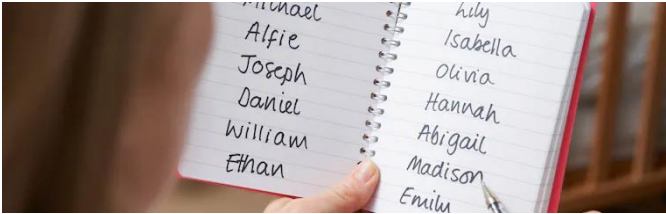 Michael
Alfie
Joseph
Daniel
William
Ethan
Lily
Isabella
Olivia
Hannah
Abigail
Madison
Emily